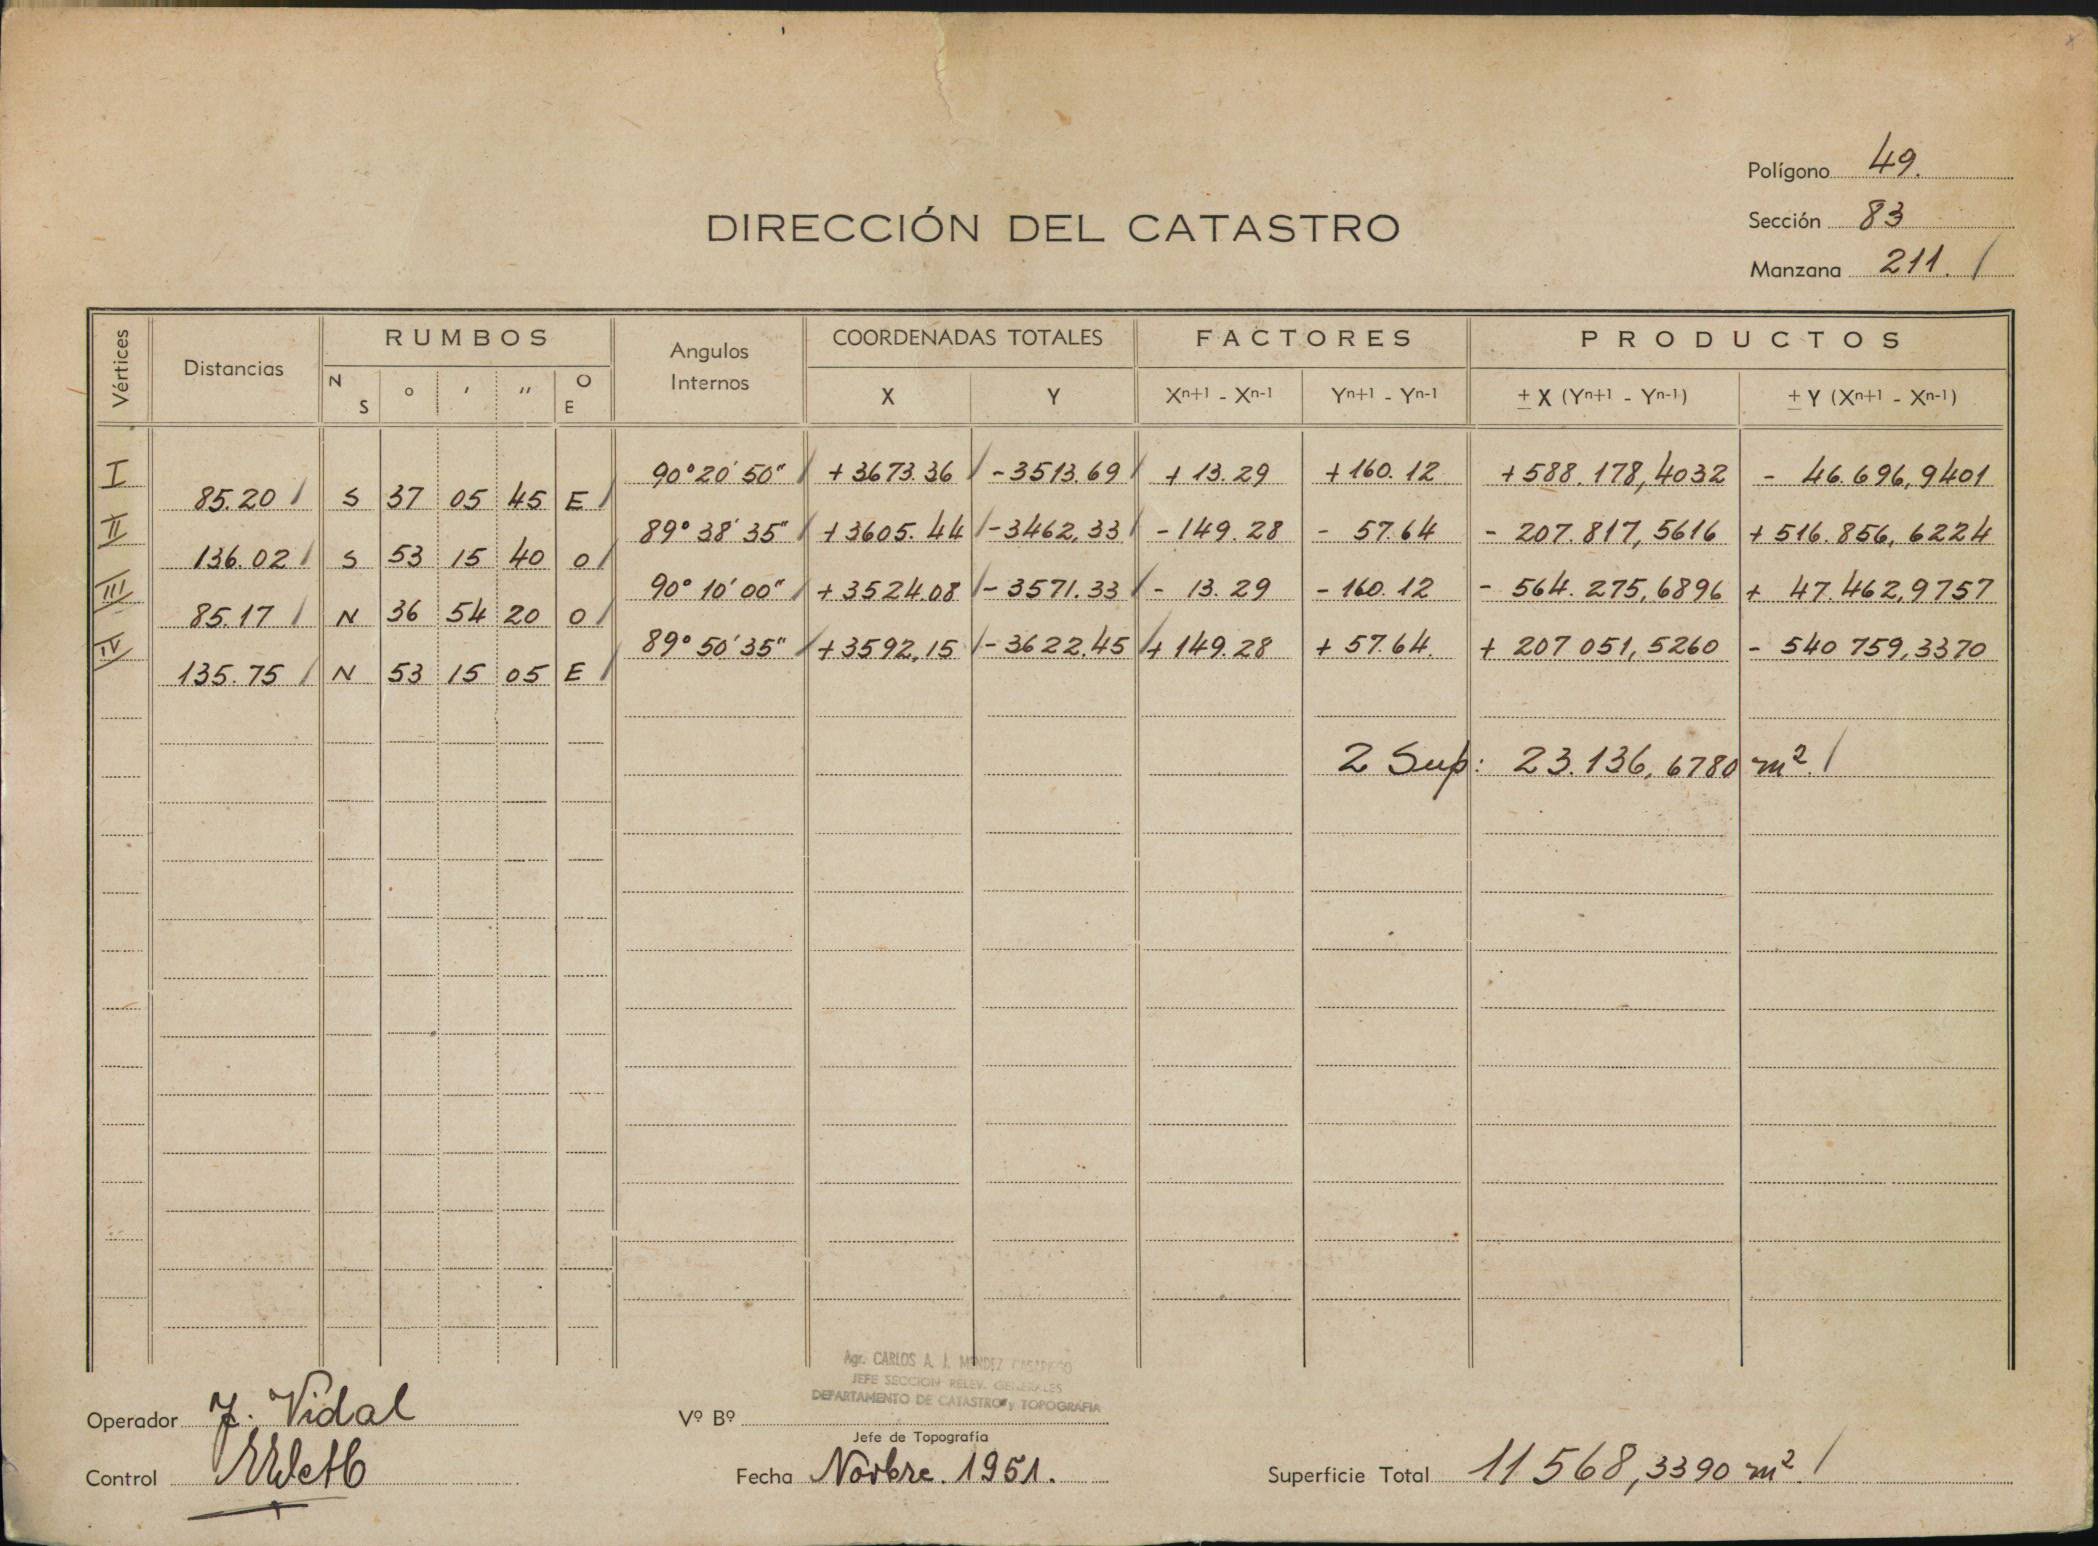 Polígono 49.
DIRECCIÓN DEL CATASTRO
Sección 83
Manzana 211. /
Vértices Distancias RUMBOS Angulos Internos COORDENADAS TOTALES FACTORES PRODUCTOS
N S o ' " O E X Y Xn+1 - Xn-1 Yn+1 - Yn-1 ± X (Yn+1 - Yn-1) ± Y (Xn+1 - Xn-1)
I 90° 20' 50" / + 3673.36 / - 3513.69 / + 13.29 + 160.12 + 588.178,4032 - 46.696,9401
85.20 / S 37 05 45 E /
II 89° 38' 35" / + 3605.44 / - 3462,33 / - 149.28 - 57.64 - 207.817,5616 + 516.856,6224
136.02 / S 53 15 40 O /
III 90° 10' 00" / + 3524.08 / - 3571.33 / - 13.29 - 160.12 - 564.275,6896 + 47.462,9757
85.17 / N 36 54 20 O /
IV 89° 50' 35" / + 3592,15 / - 3622.45 / + 149.28 + 57.64. + 207 051,5260 - 540 759,3370
135.75 / N 53 15 05 E /
2 Sup: 23.136,6780 m². /
Agr. CARLOS A. J. MENDEZ CASARIEGO
JEFE SECCION RELEV. GENERALES
DEPARTAMENTO DE CATASTRO y TOPOGRAFIA
Operador J. Vidal Vº Bº
Jefe de Topografía
Control Fecha Novbre. 1951. Superficie Total 11 568,3390 m². /